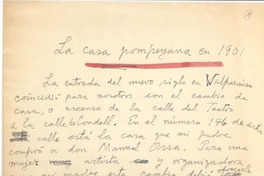 La casa pompeyana en 1901
La entrada del nuevo siglo en Valparaíso
coincidió para nosotros con el cambio de
casa, o ascenso de la calle del Teatro
a la calle Condell. En el número 146 de dicha
calle está la casa que mi padre
compró a don Manuel Ossa. Para una
mujer artista y organizadora
mi madre este cambio debió ofrecerle